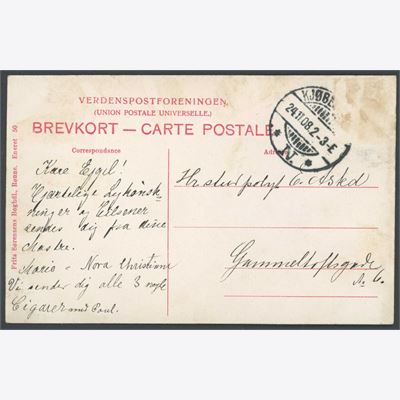 VERDENSPOSTFORENINGEN.
(UNION POSTALE UNIVERSELLE.)
BREVKORT — CARTE POSTALE
Correspondance
Kære Ejgil!
Hjærtelige Lykønsk-
ninger og Hilsener
sendes dig fra dine
Marie - Nora Christiane
Vi sender dig alle 3 nogle
Cigarer med Poul.
Frits Sørensens Boghdl., Rønne. Eneret 50
KJØBE
24.11.08.2-3-E
* IV *
Hr. stud. polyt. E.
Gammeltoftsgade
No 6.